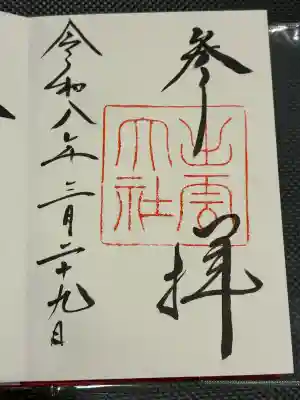 参拝
出雲大社
令和八年三月二十九日